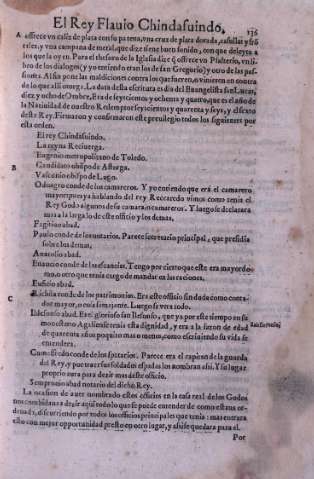 El Rey Flauio Chindasuindo,
136
A ofrece vn caliz de plata con su patena, vna cruz de plata dorada, casullas y
y vna campana de metal, que dize tiene buen sonido, con que deleyta a
los que la oyen. Para el seruicio de la Iglesia dize que ofrece vn Psalterio, vn li-
bro de los dialogos (y yo entiendo eran los de san Gregorio) y otro de las pas-
siones. Al fin pone las maldiciones contra los que fueren, o vinieren en contra
de lo que alli otorga. La data desta escritura es dia del Euangelista san Lucas,
diez y ocho de Otubre, Era de seyscientos y ochenta y quatro, que es el año de
la Natiuidad de nuestro Redemptor seyscientos y quarenta y seys, y el sexto
deste Rey. Firmaron y confirmaron este preuilegio todos los siguientes por
esta orden.
El rey Chindasuindo.
La reyna Reciuerga.
Eugenio metropolitano de Toledo.
B
Candidato obispo de Astorga.
Vasconio obispo de Lugo.
Odoagro conde de los camareros. Y yo entiendo que era el camarero
mayor: pues ya hablando del rey Recaredo vimos como tenia el
Rey Godo algunos de su camara, no camareros. Y luego se declarara
mas a la larga lo de este officio y los demas.
Fugitiuo abad.
Paulo conde de los notarios. Parece secretario principal, que presidia
sobre los demas.
Anatolio abad.
Euancio conde de las escancias. Tengo por cierto que este era mayordo-
mo, o otro que tenia cargo de mandar en las raciones.
Eusicio abad.
C
Richila conde de los patrimonios. Era este officio sin duda como conta-
dor mayor, o cosa semejante. Luego se vera todo.
Ildefonso abad. Era el glorioso san Ildefonso, que ya por este tiempo en su
monesterio Agaliense tenia esta dignidad, y era a la sazon de edad
de quarenta años poquito mas o menos, como escriuiendo su vida se
entendera.
San Ildefonso
Cumefredo conde de los spatarios. Parece era el capitan de la guarda
del Rey, y por traer sus soldados espadas los nombran assi. Y su lugar
proprio aura para dezir mas deste officio.
Sempronio abad notario del dicho Rey.
La ocasion de auer nombrado estos officios en la casa real de los Godos
nos combidaua a dezir aqui todo lo que se puede entender de como estauan or-
denados, discurriendo por todos los officios principales que tenia: mas entrara
ello con mejor oportunidad presto en otro lugar, y assi se quedara para el.
Por